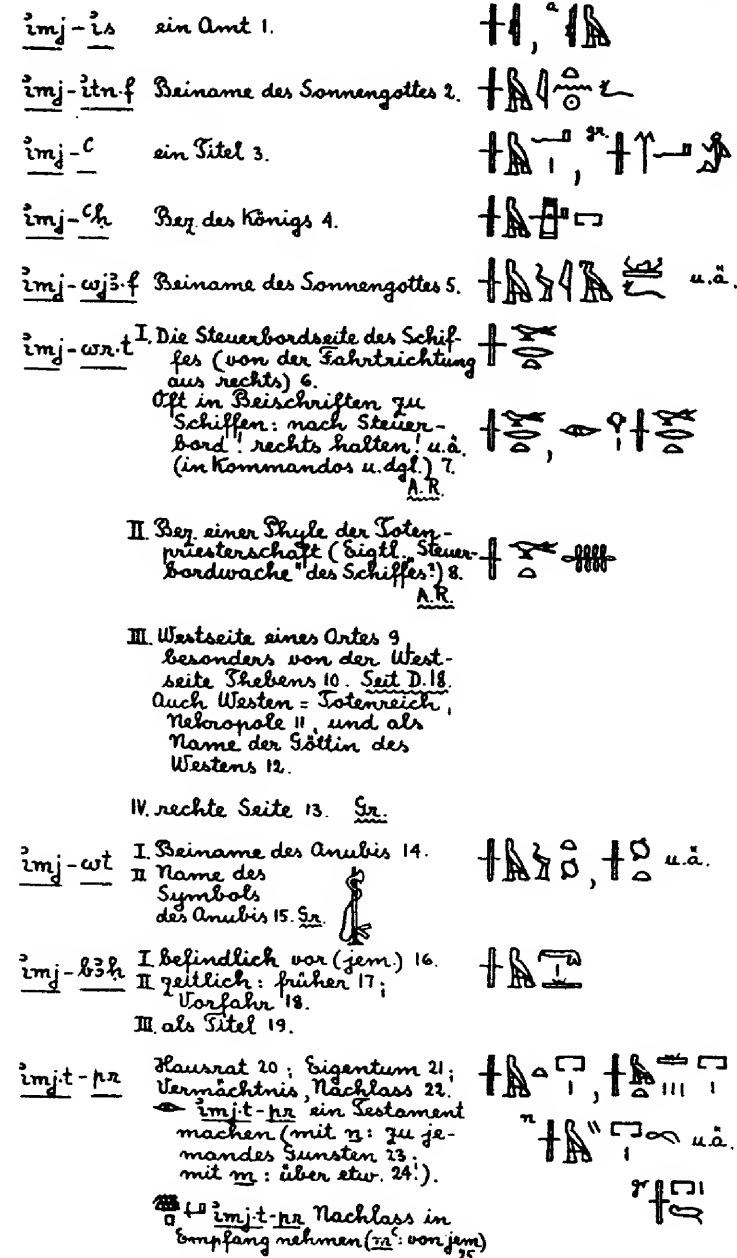 i͗mj-i͗s ein Amt 1. a
i͗mj-i͗tn.f Beiname des Sonnengottes 2.
i͗mj-ꜥ ein Titel 3. gr.
i͗mj-ꜥḥ Bez. des Königs 4.
i͗mj-wjꜣ.f Beiname des Sonnengottes 5. u.ä.
i͗mj-wr.t I. Die Steuerbordseite des Schif-
fes (von der Fahrtrichtung
aus rechts) 6.
Oft in Beischriften zu
Schiffen: nach Steuer-
bord! rechts halten! u.ä.
(in Kommandos u. dgl.) 7.
A.R.
II. Bez. einer Phyle der Toten-
priesterschaft (Eigtl. „Steuer-
bordwache" des Schiffes?) 8.
A.R.
III. Westseite eines Ortes 9,
besonders von der West-
seite Thebens 10. Seit D.18.
Auch Westen = Totenreich,
Nekropole 11, und als
Name der Göttin des
Westens 12.
IV. rechte Seite 13. Gr.
i͗mj-wt I. Beiname des Anubis 14. u.ä.
II Name des
Symbols
des Anubis 15. Gr.
i͗mj-bꜣḥ I befindlich vor (jem.) 16.
II zeitlich: früher 17;
Vorfahr 18.
III. als Titel 19.
i͗mj.t-pr Hausrat 20; Eigentum 21;
Vermächtnis, Nachlass 22.
i͗mj.t-pr ein Testament
machen (mit n: zu je- n u.ä.
mandes Gunsten 23;
mit m: über etw. 24.).
gr
i͗mj.t-pr Nachlass in
Empfang nehmen (mꜥ: von jem)
25